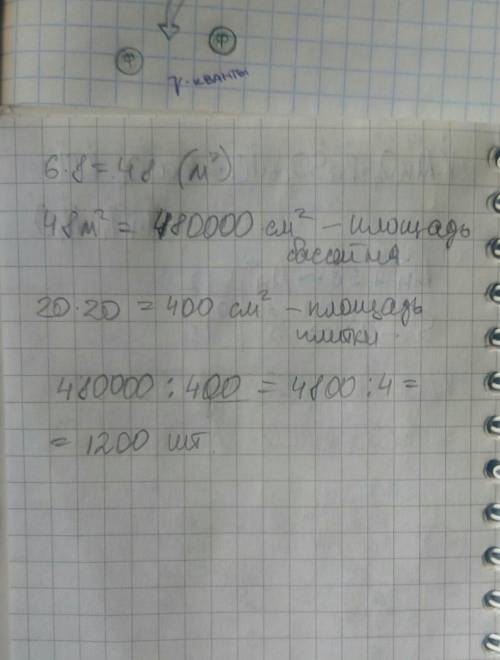 Ф Ф
γ-кванты
6·8 = 48 (м²)
48 м² = 480000 см² – площадь
бассейна.
20·20 = 400 см² – площадь
плитки.
480000 : 400 = 4800 : 4 =
= 1200 шт.